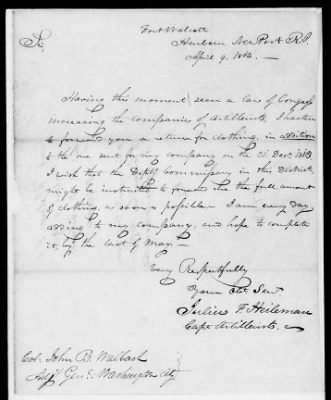 Fort Wolcott
Harbour New Port R.I.
April 9. 1814. —
Having this moment seen a Law of Congress
increasing the companies of Artillerists, I hasten
to forward you a return for clothing, in addition
to the one sent for my company on the 31 Decr. 1813
I wish that the Depty. Commissary in this District
might be instructed to forward me the full amount
of clothing, as soon as possible — I am every day
adding to my company, and hope to complete
it by the last of May. —
Very Respectfully
Your Obt. Servt.
Julius F. Heileman
Capt. Artillerists.
Col. John B. Walbach
Adjt. Genl. Washington City